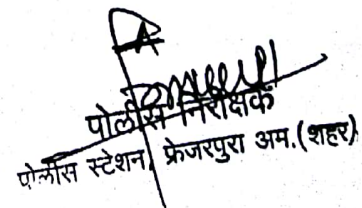 पोलीस निरीक्षक
पोलीस स्टेशन, फ्रेजरपुरा अम.(शहर)